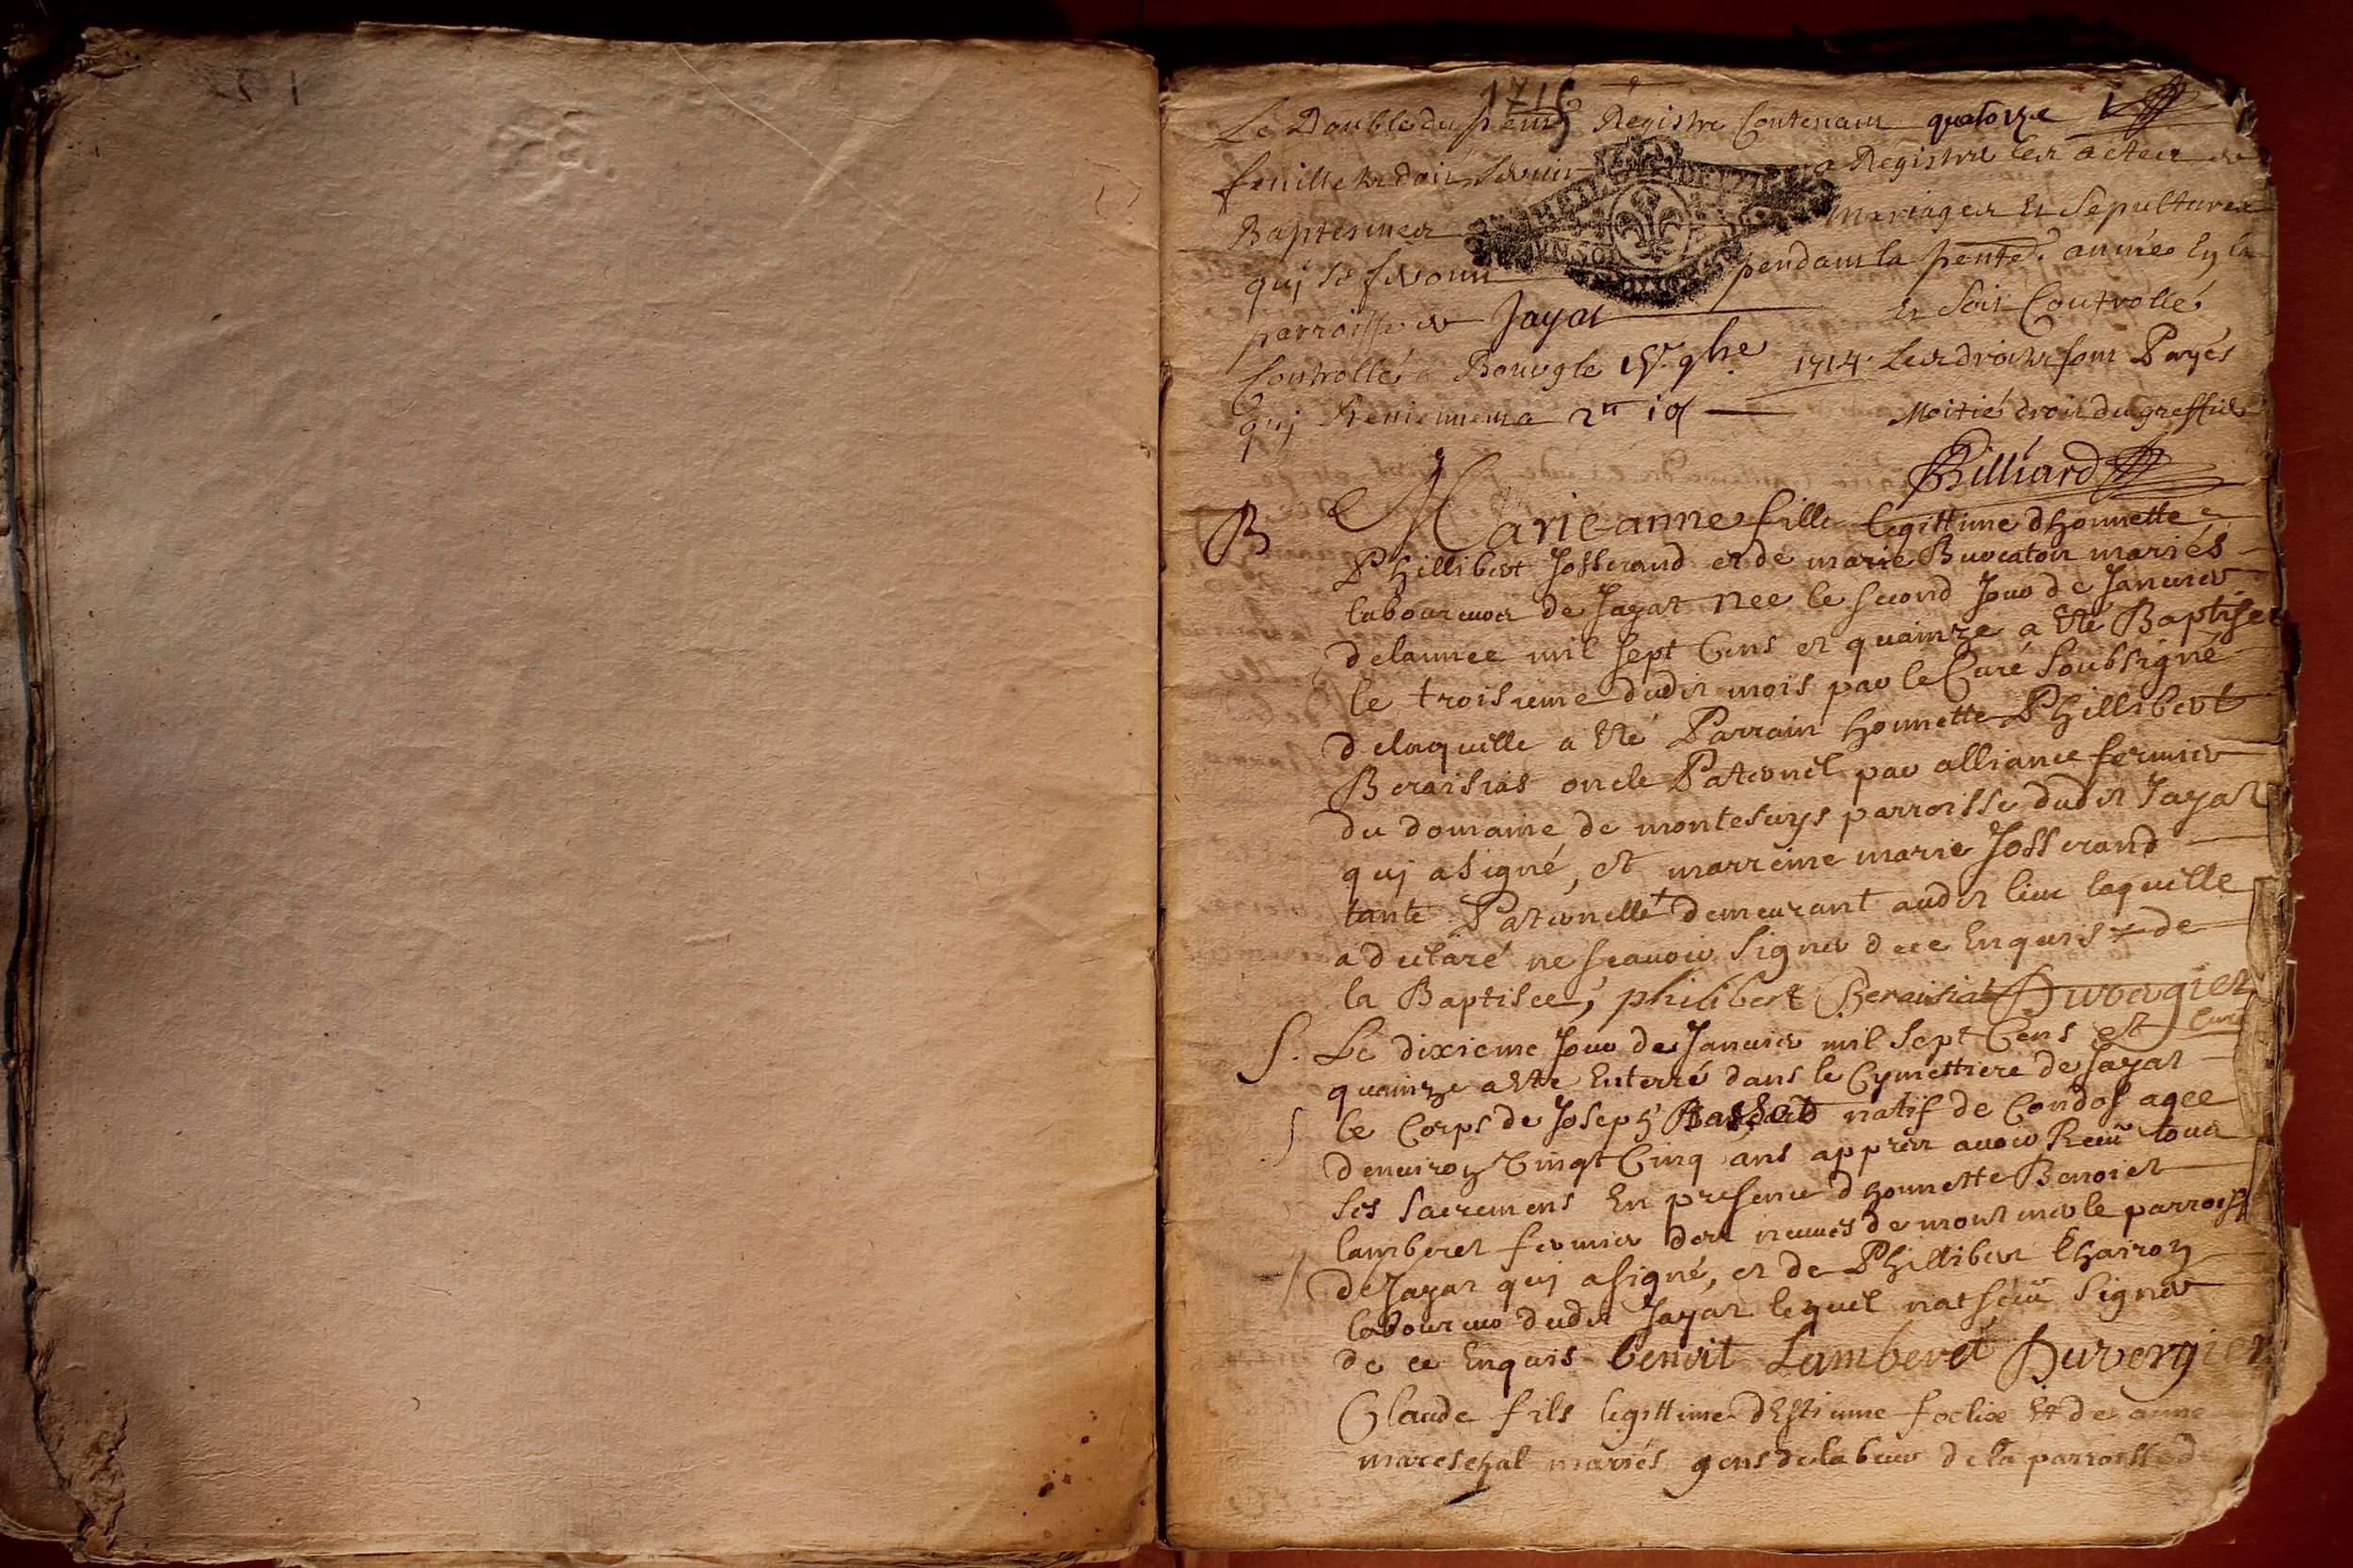 1715
Le Double du pent Registre Contenant quatorze
feuillets doit servir a Registrer les actes de
Baptesmes mariages Et Sepultures
quj se feront pendant la pente. année En la
parroisse de Jayat Et Soit Controllé
Controllé a Bourg le 9bre 1714. Les droits sont Payés
quj Reviennent a 2ᵗᵗ 10ſ Moitié droit du greffier
Billiard
B Marie anne fille legittime dhonnette
Phillibert Josserand et de marie Buvcaton mariés
laboureurs de Jayat Née le second Jour de Janvier
delannee mil sept Cens et quainze a Eté Baptisee
le troisieme dudit mois par le Curé Soubsigné
delaquelle a Eté Parrain honnette Phillibert
Beraisias oncle Paternel par alliance fermier
du domaine de montesuys parroisse dudit Jayat
quj a signé, et marreine marie Josserand
tante Paternelle + demeurant audit lieu laquelle
a declaré ne scavoir Signer dece Enquise + de
la Baptisee, philibert Beraisiat Duvergier
Curé
S. Le dixieme Jour de Janvier mil Sept Cens et
quainze a Eté Enterré dans le Cymettiere de Jayat
le Corps de Joseph natif de Condof agee
denviron Vingt Cinq ans apprès avoir Receü tous
ses Sacremens En presence dhonnette Benoiet
lamberet fermier des de mont merle parroisse
de Jayat quj a signé, et de Phillibert Chairon
laboureur dudit Jayat lequel nat sceü Signer
de ce Enquis benoit Lamberet Duvergier
Claude fils legittime dEstienne foclix Et de anne
mareschal mariés gens de labeur de la parroisse d